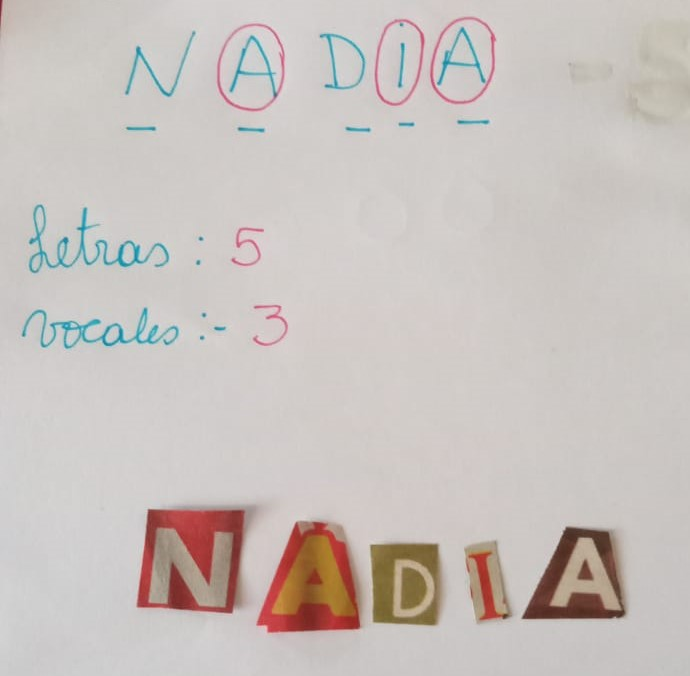 NADiA
Letras: 5
vocales:- 3
NADIA